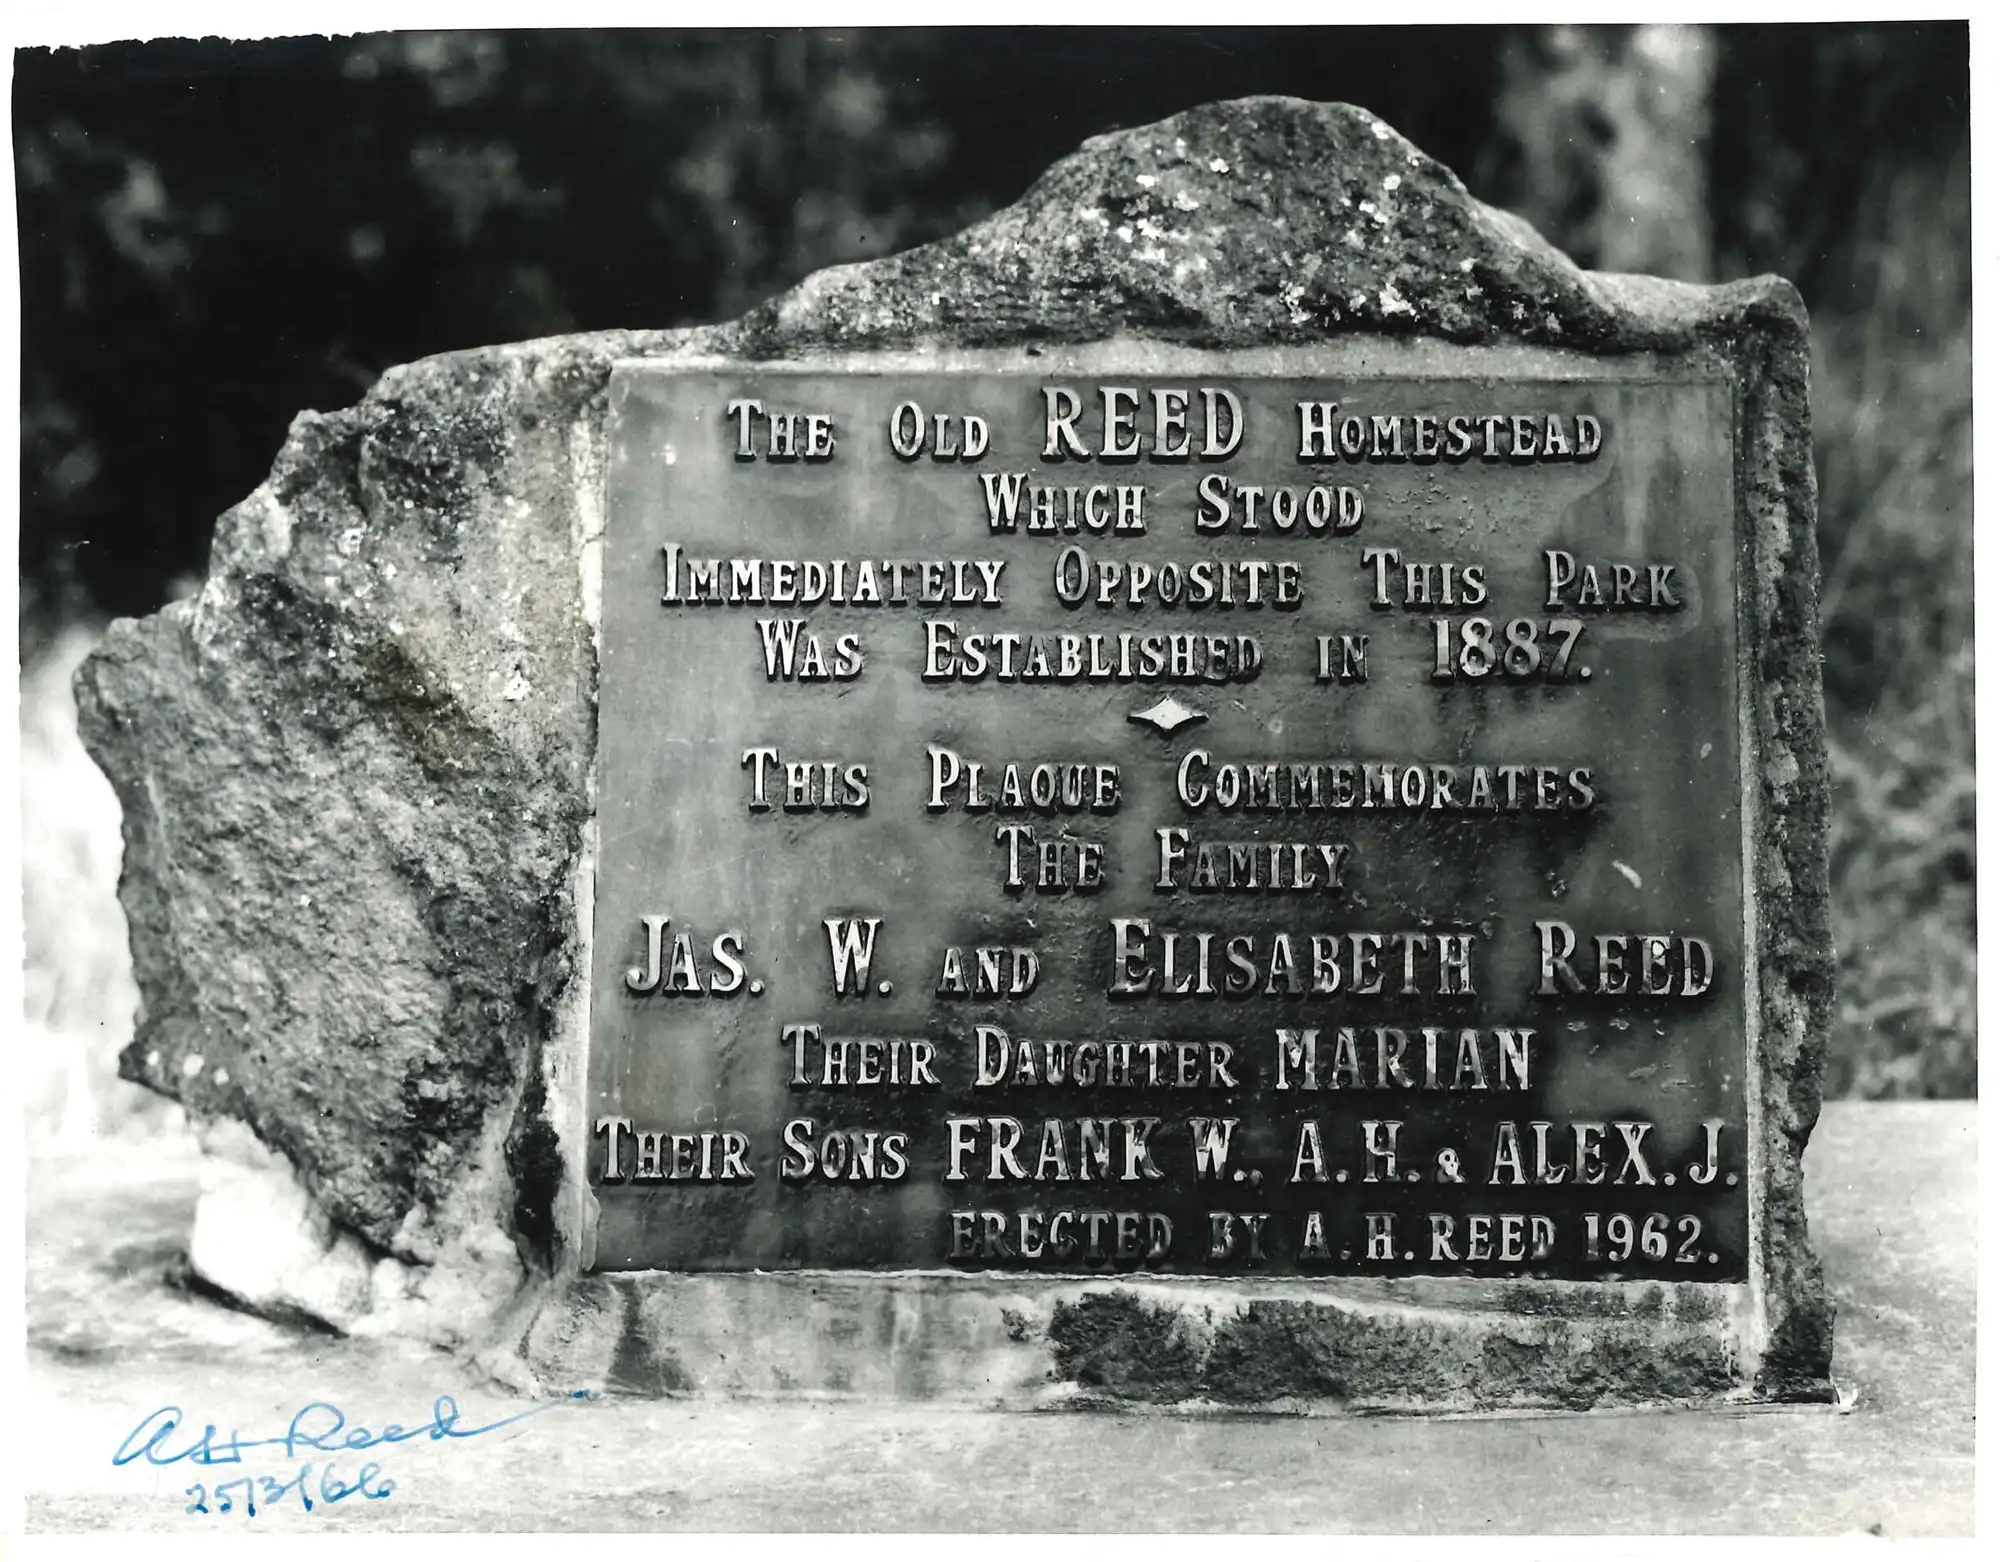 The Old REED Homestead
Which Stood
Immediately Opposite This Park
Was Established in 1887.
This Plaque Commemorates
The Family
Jas. W. and Elisabeth Reed
Their Daughter MARIAN
Their Sons FRANK W., A.H. & ALEX. J.
ERECTED BY A.H. REED 1962.
A H Reed
25/3/66